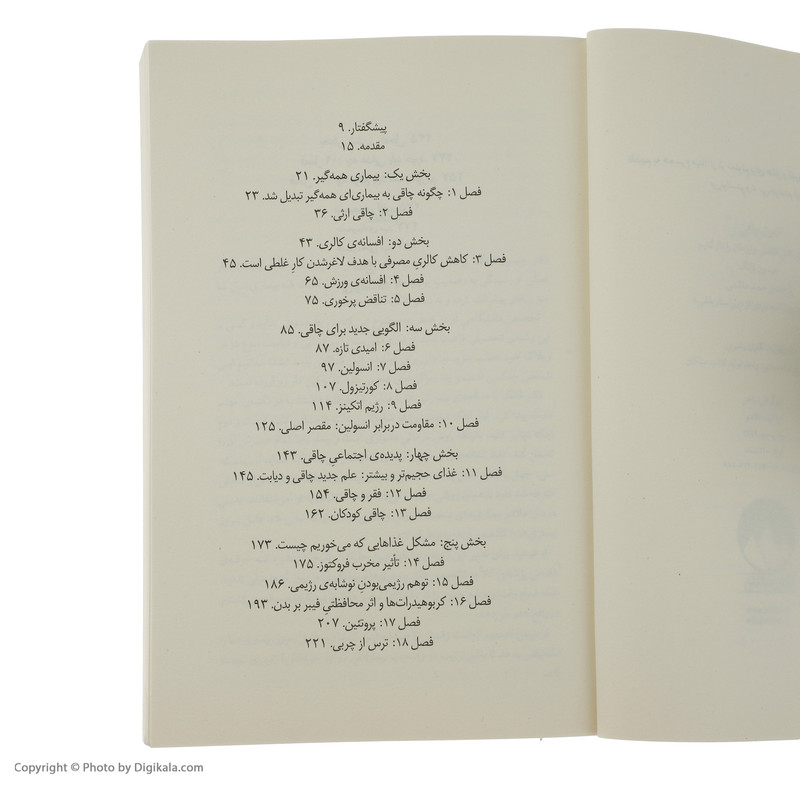 پیشگفتار. ۹
مقدمه. ۱۵
بخش یک: بیماری همه‌گیر. ۲۱
فصل ۱: چگونه چاقی به بیماری‌ای همه‌گیر تبدیل شد. ۲۳
فصل ۲: چاقی ارثی. ۳۶
بخش دو: افسانه‌ی کالری. ۴۳
فصل ۳: کاهش کالریِ مصرفی با هدف لاغرشدن کارِ غلطی است. ۴۵
فصل ۴: افسانه‌ی ورزش. ۶۵
فصل ۵: تناقض پرخوری. ۷۵
بخش سه: الگویی جدید برای چاقی. ۸۵
فصل ۶: امیدی تازه. ۸۷
فصل ۷: انسولین. ۹۷
فصل ۸: کورتیزول. ۱۰۷
فصل ۹: رژیم اتکینز. ۱۱۴
فصل ۱۰: مقاومت دربرابر انسولین: مقصر اصلی. ۱۲۵
بخش چهار: پدیده‌ی اجتماعیِ چاقی. ۱۴۳
فصل ۱۱: غذای حجیم‌تر و بیشتر: علم جدید چاقی و دیابت. ۱۴۵
فصل ۱۲: فقر و چاقی. ۱۵۴
فصل ۱۳: چاقی کودکان. ۱۶۲
بخش پنج: مشکل غذاهایی که می‌خوریم چیست. ۱۷۳
فصل ۱۴: تأثیر مخرب فروکتوز. ۱۷۵
فصل ۱۵: توهم رژیمی‌بودنِ نوشابه‌ی رژیمی. ۱۸۶
فصل ۱۶: کربوهیدرات‌ها و اثر محافظتیِ فیبر بر بدن. ۱۹۳
فصل ۱۷: پروتئین. ۲۰۷
فصل ۱۸: ترس از چربی. ۲۲۱
Copyright © Photo by Digikala.com